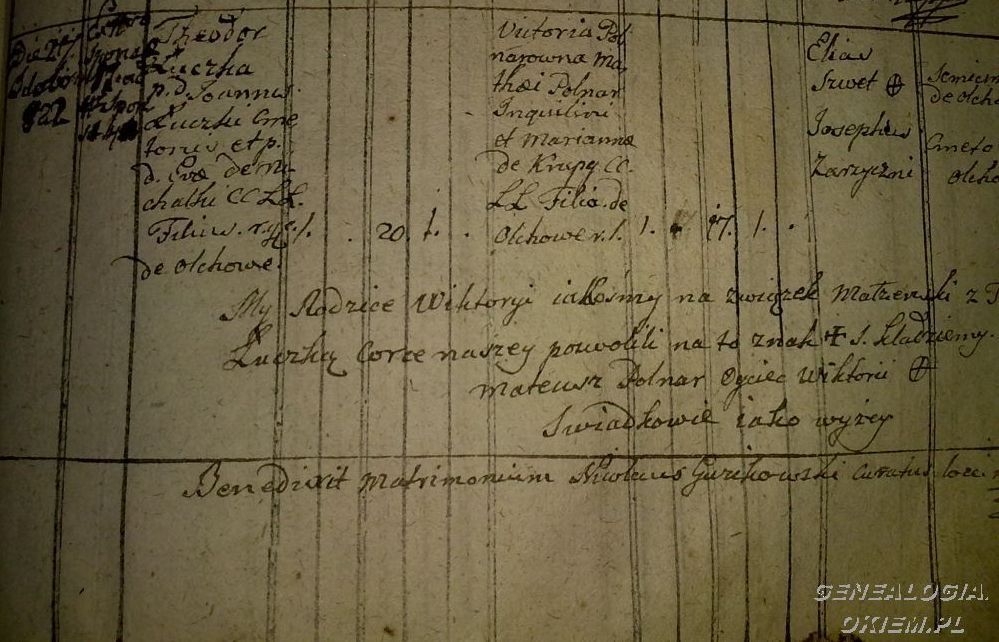 Die 27
822
Theodor
Łuczka
p. d. Joannis
Łuczki Cme
tonis et p.
d. Evæ de Mi
chalski CC LL.
Filius
de Olchowe.
20. 1.
Victoria Pol
narowna Ma
thæi Polnar
Inquilini
et Mariannæ
de Krupy CC.
LL Filia. de
Olchowe r. l. 1. 17. 1.
Elias
Szwet ⊕
Josephus
Zarzyczni
de Olcho
Cmeto
Olcho
My Rodzice Wiktoryi iakośmy na związek Małżenski z T
Łuczką Corce naszey pozwolili na to znak ✝ S. kładziemy.
Mateusz Polnar Oyciec Wiktorii ⊕
Swiadkowie iako wyżey
Benedixit Matrimonium Nicolaus Gurikowski Curatus loci
GENEALOGIA
OKIEM.PL